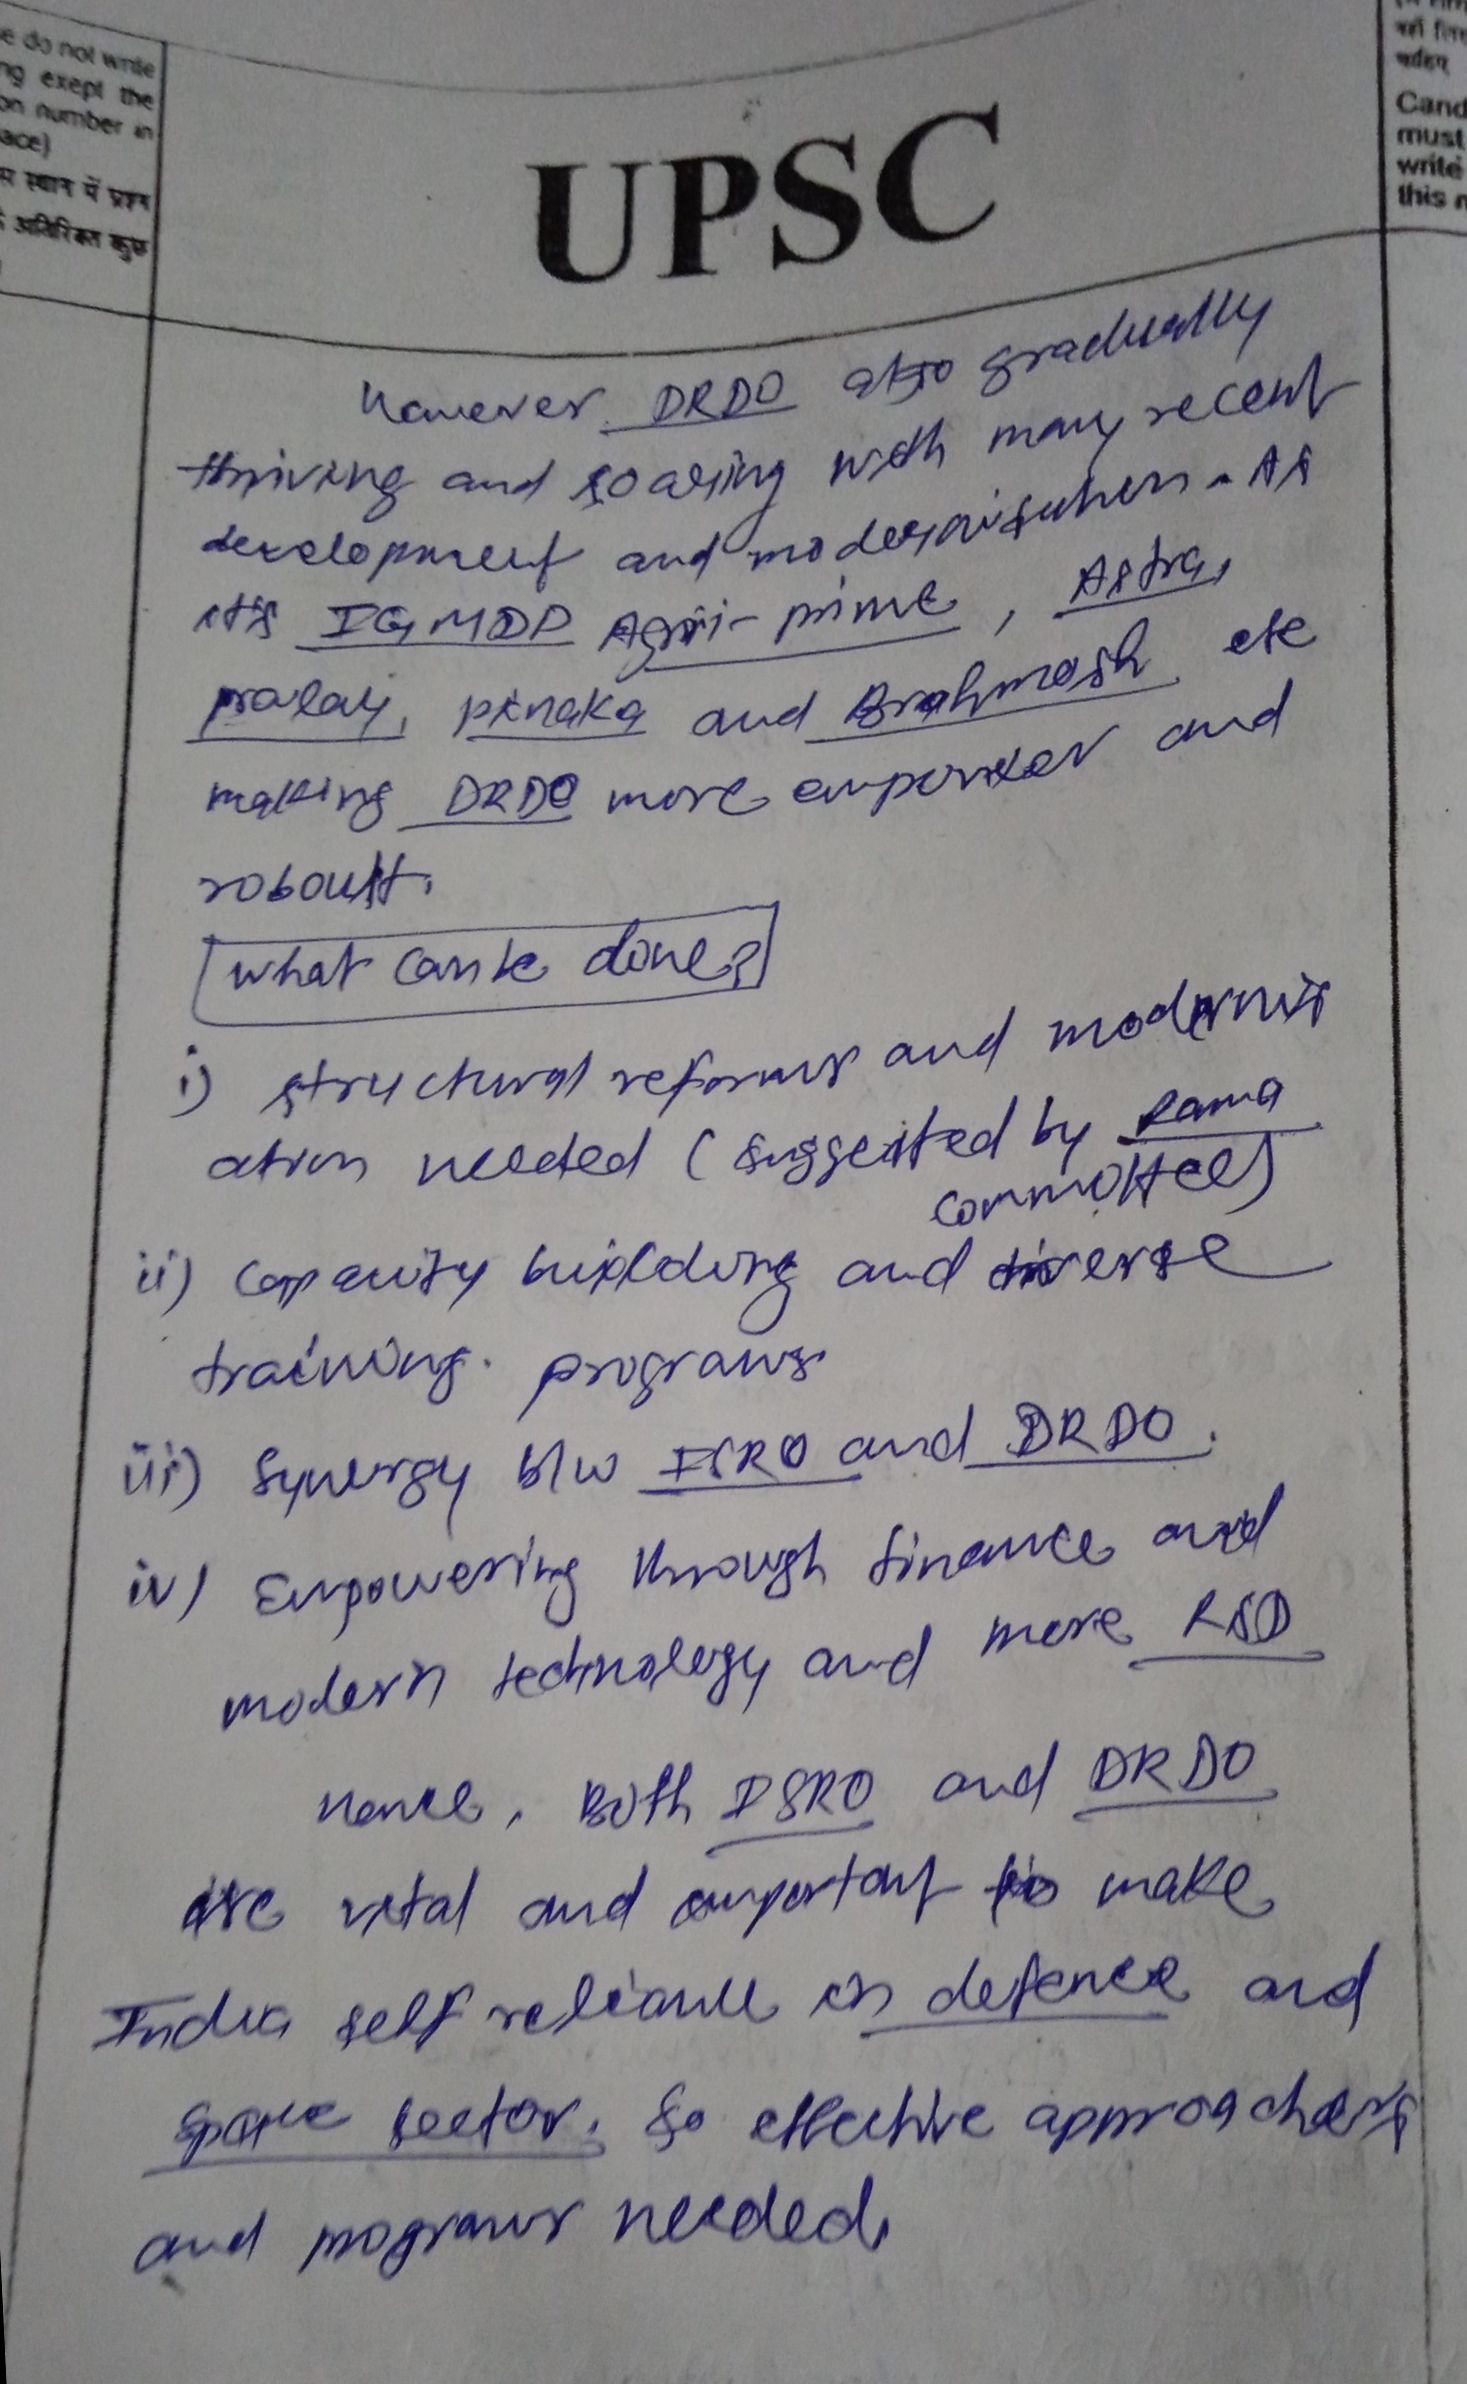 e do not write
ng exept the
on number in
ace)
स स्थान में प्रश्न
के अतिरिक्त कुछ
Cand
must
write
this
UPSC
However DRDO also gradually
thriving and soaring with many recent
development and modernisation. As
it's IGMDP Agni-prime, Astra,
pralay, pinaka and Brahmosh etc
making DRDO more empower and
roboust.
What can be done?
i) structural reforms and modernis
ation needed (suggested by Rama
committee)
ii) capacity building and diverse
training programs
iii) Synergy b/w ISRO and DRDO.
iv) Empowering through finance and
modern technology and more R&D
Hence, Both ISRO and DRDO
are vital and important to make
India self reliance in defence and
space sector. So effective approaches
and programs needed.